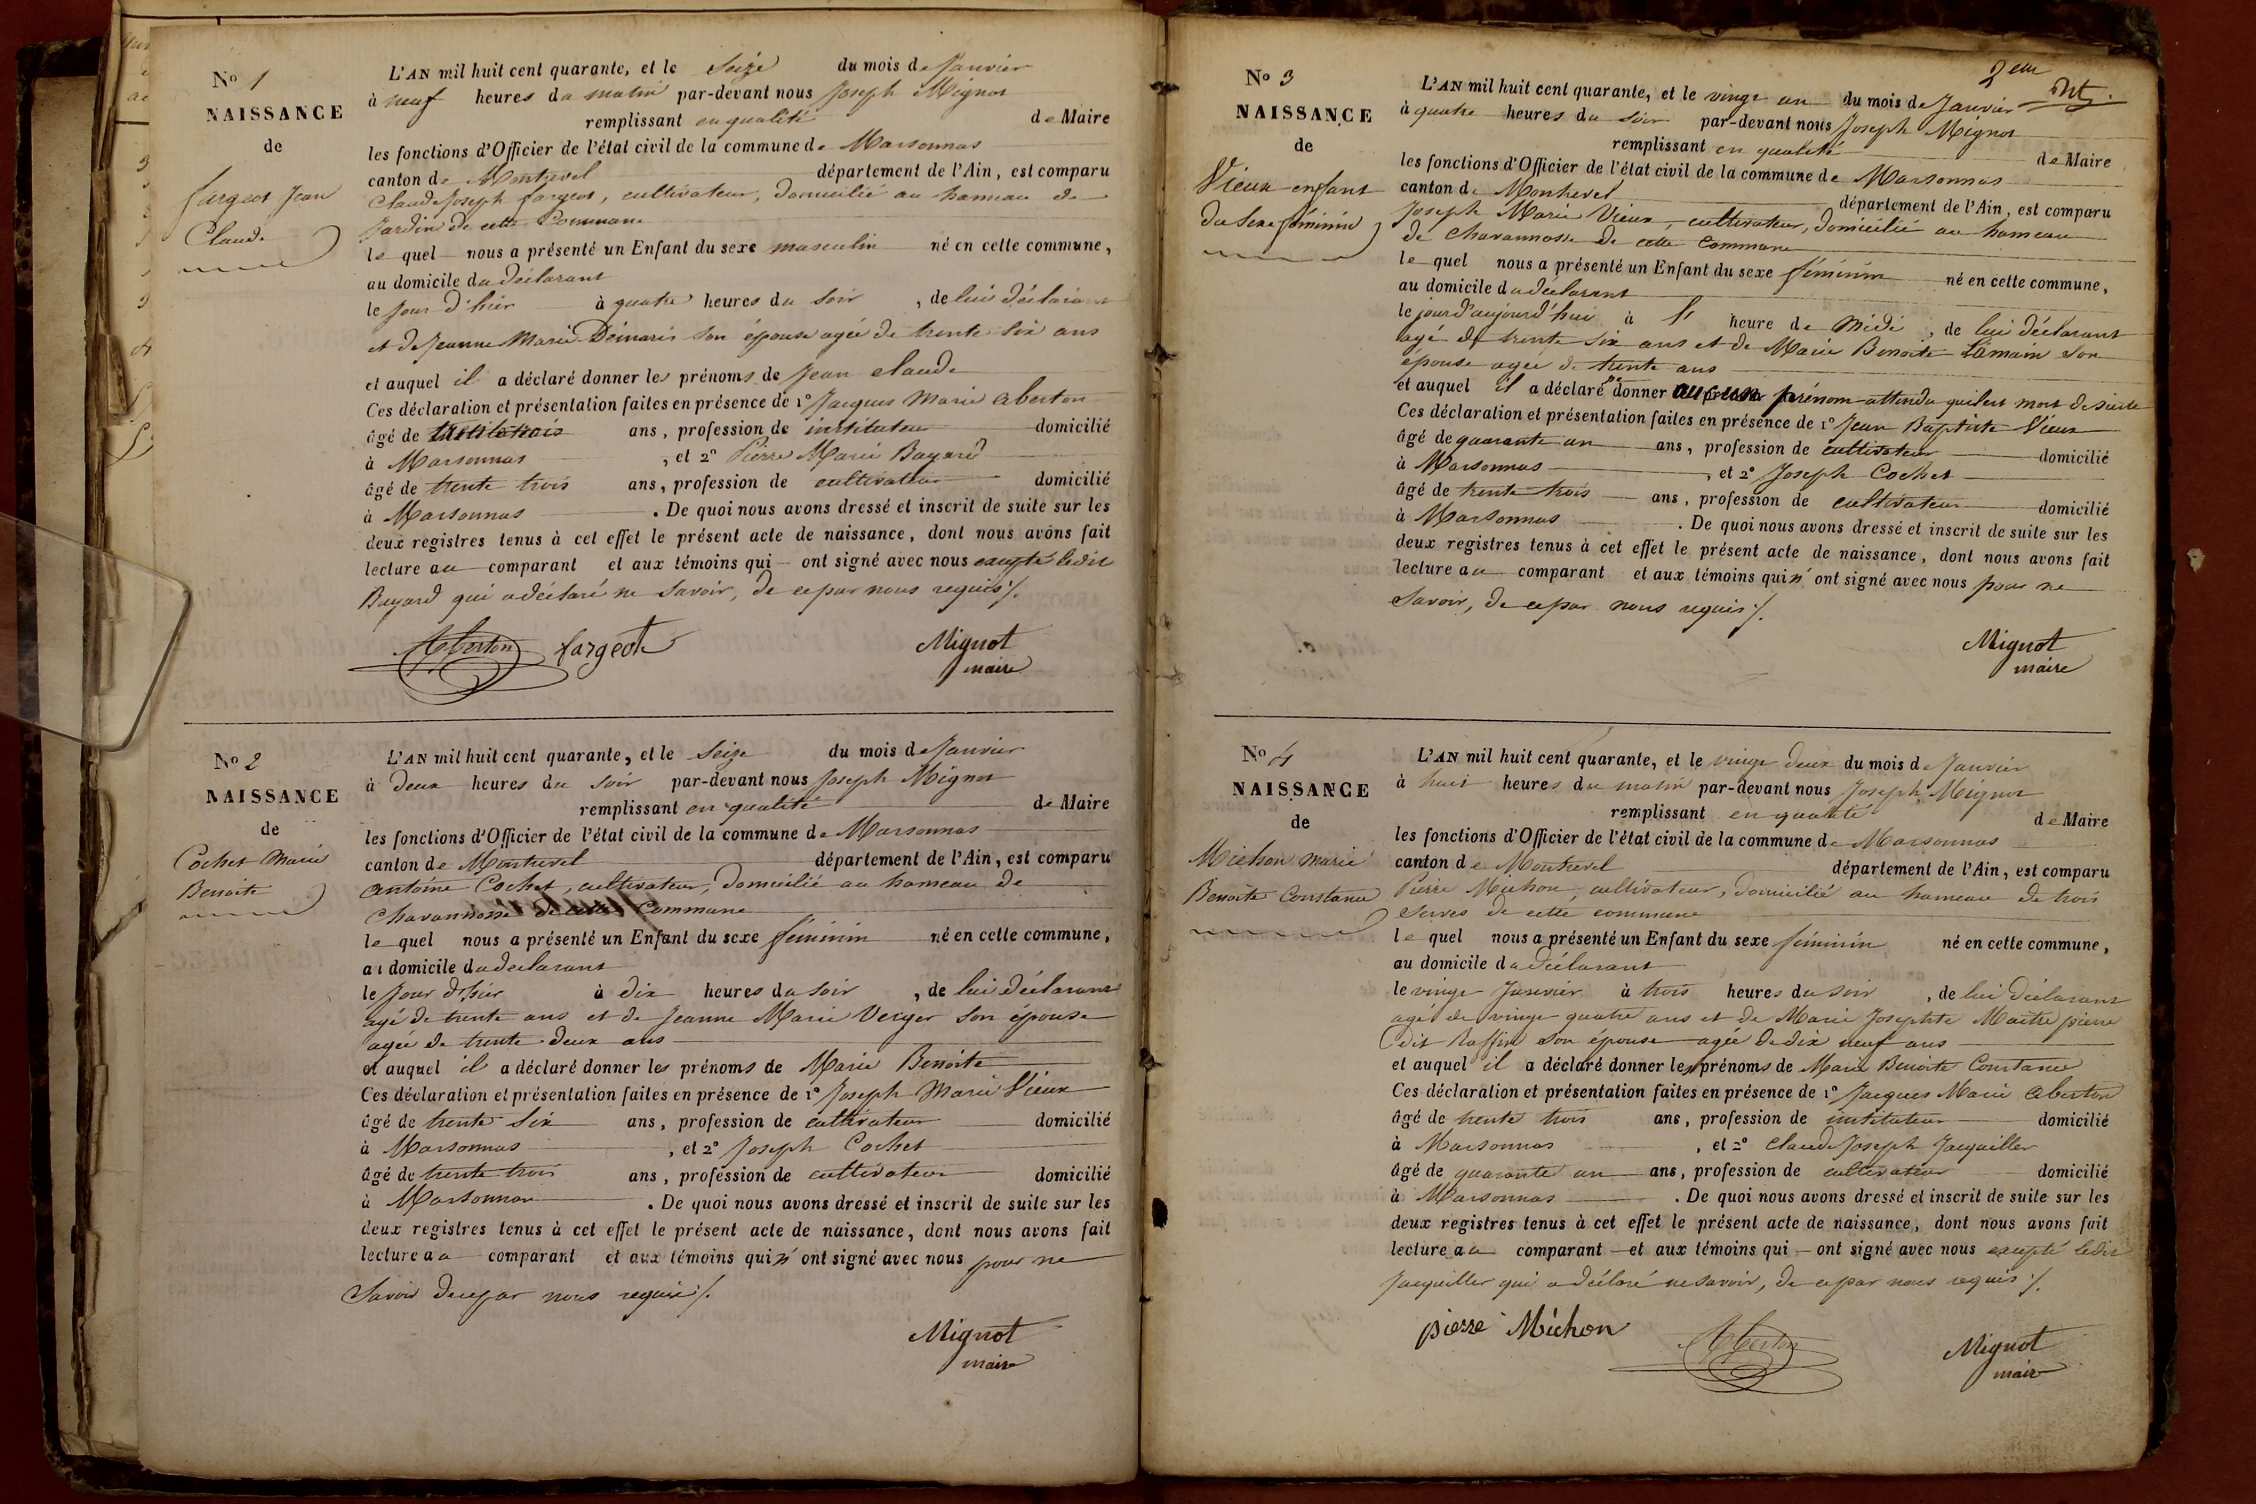 No 1
NAISSANCE
de
fargeot Jean
Claude
L'AN mil huit cent quarante, et le Seize du mois de Janvier
à neuf heures du matin par-devant nous Joseph Mignot
remplissant en qualité de Maire
les fonctions d'Officier de l'état civil de la commune de Marsonnas
canton de Montrevel département de l'Ain, est comparu
Claude Joseph fargeot, cultivateur, domicilié au hameau de
Jardin de cette Commune
le quel nous a présenté un Enfant du sexe masculin né en cette commune,
au domicile du déclarant
le Jour d'hier à quatre heures du Soir, de lui déclarant
et de Jeanne Marie Demaris son épouse agée de trente six ans
et auquel il a déclaré donner les prénoms de Jean Claude
Ces déclaration et présentation faites en présence de 1° Jacques Marie Aberton
âgé de trente trois ans, profession de instituteur domicilié
à Marsonnas, et 2° Pierre Marie Bayard
âgé de trente trois ans, profession de cultivateur domicilié
à Marsonnas. De quoi nous avons dressé et inscrit de suite sur les
deux registres tenus à cet effet le présent acte de naissance, dont nous avons fait
lecture au comparant et aux témoins qui ont signé avec nous excepté ledit
Bayard qui a déclaré ne Savoir, de ce par nous requis ./.
Aberton fargeot Mignot
maire
No 2
NAISSANCE
de
Cochet Marie
Benoite
L'AN mil huit cent quarante, et le Seize du mois de Janvier
à deux heures du soir par-devant nous Joseph Mignot
remplissant en qualité de Maire
les fonctions d'Officier de l'état civil de la commune de Marsonnas
canton de Montrevel département de l'Ain, est comparu
Antoine Cochet, cultivateur, domicilié au hameau de
Chavannosse de cette Commune
le quel nous a présenté un Enfant du sexe féminin né en cette commune,
au domicile du déclarant
le Jour d'hier à dix heures du soir, de lui déclarant
agé de trente ans et de Jeanne Marie Verger Son épouse
agée de trente deux ans
et auquel il a déclaré donner les prénoms de Marie Benoite
Ces déclaration et présentation faites en présence de 1° Joseph Marie Vieux
âgé de trente Six ans, profession de cultivateur domicilié
à Marsonnas, et 2° Joseph Cochet
âgé de trente trois ans, profession de cultivateur domicilié
à Marsonnas. De quoi nous avons dressé et inscrit de suite sur les
deux registres tenus à cet effet le présent acte de naissance, dont nous avons fait
lecture au comparant et aux témoins qui n'ont signé avec nous pour ne
Savoir de ce par nous requis ./.
Mignot
maire
2eme
No 3
NAISSANCE
de
Vieux enfant
du Sexe féminin
L'AN mil huit cent quarante, et le vingt un du mois de Janvier
à quatre heures du Soir par-devant nous Joseph Mignot
remplissant en qualité de Maire
les fonctions d'Officier de l'état civil de la commune de Marsonnas
canton de Montrevel département de l'Ain, est comparu
Joseph Marie Vieux, cultivateur, domicilié au hameau
de Chavannosse de cette Commune
le quel nous a présenté un Enfant du sexe féminin né en cette commune,
au domicile du déclarant
le jour d'aujourd'hui à 11 heure de Midi, de lui déclarant
agé de trente six ans et de Marie Benoite Lamain Son
épouse agée de trente ans
et auquel il a déclaré ne donner aucun prénom attendu quil est mort de suite
Ces déclaration et présentation faites en présence de 1° Jean Baptiste Vieux
âgé de quarante un ans, profession de cultivateur domicilié
à Marsonnas, et 2° Joseph Cochet
âgé de trente trois ans, profession de cultivateur domicilié
à Marsonnas. De quoi nous avons dressé et inscrit de suite sur les
deux registres tenus à cet effet le présent acte de naissance, dont nous avons fait
lecture au comparant et aux témoins qui n'ont signé avec nous pour ne
Savoir, de ce par nous requis ./.
Mignot
maire
No 4
NAISSANCE
de
Michon Marie
Benoite Constance
L'AN mil huit cent quarante, et le vingt deux du mois de Janvier
à huit heures du matin par-devant nous Joseph Mignot
remplissant en qualité de Maire
les fonctions d'Officier de l'état civil de la commune de Marsonnas
canton de Montrevel département de l'Ain, est comparu
Pierre Michon, cultivateur, domicilié au hameau de trois
Serves de cette commune
le quel nous a présenté un Enfant du sexe féminin né en cette commune,
au domicile du déclarant
le vingt Janvier à trois heures du soir, de lui déclarant
agé de vingt quatre ans et de Marie Josephte Maitrepierre
dit Raffin son épouse agée de dix neuf ans
et auquel il a déclaré donner les prénoms de Marie Benoite Constance
Ces déclaration et présentation faites en présence de 1° Jacques Marie Aberton
âgé de trente trois ans, profession de instituteur domicilié
à Marsonnas, et 2° Claude Joseph Jacquiller
âgé de quarante un ans, profession de cultivateur domicilié
à Marsonnas. De quoi nous avons dressé et inscrit de suite sur les
deux registres tenus à cet effet le présent acte de naissance, dont nous avons fait
lecture au comparant et aux témoins qui ont signé avec nous excepté ledit
Jacquiller qui a déclaré ne savoir, de ce par nous requis ./.
pierre Michon Aberton Mignot
maire